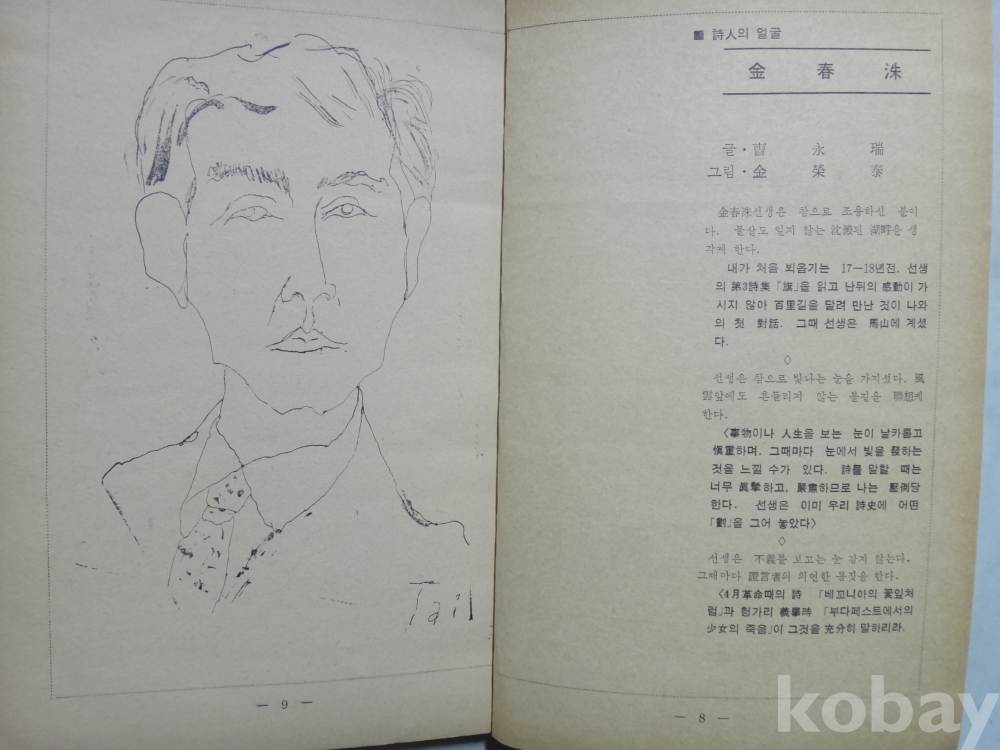 ■ 詩人의 얼굴
金 春 洙
글・曺 永 瑞
그림・金 榮 泰
金春洙선생은 참으로 조용하신 분이
다. 물살도 일지 않는 沈澱된 湖畔을 생
각케 한다.
내가 처음 뵈옵기는 17—18년전. 선생
의 第3詩集「旗」을 읽고 난뒤의 感動이 가
시지 않아 百里길을 달려 만난 것이 나와
의 첫 對話. 그때 선생은 馬山에 계셨
다.
◇
선생은 참으로 빛나는 눈을 가지셨다. 風
雲앞에도 흔들리지 않는 불길을 聯想케
한다.
〈事物이나 人生을 보는 눈이 날카롭고
愼重하며, 그때마다 눈에서 빛을 發하는
것을 느낄 수가 있다. 詩를 말할 때는
너무 眞摯하고, 嚴肅하므로 나는 壓倒당
한다. 선생은 이미 우리 詩史에 어떤
「劃」을 그어 놓았다〉
◇
선생은 不義를 보고는 눈 감지 않는다.
그때마다 證言者의 의연한 몸짓을 한다.
〈4月革命때의 詩 「베꼬니아의 꽃잎처
럼」과 헝가리 義擧時 「부다페스트에서의
少女의 죽음」이 그것을 充分히 말하리라.
— 8 —
Tai
— 9 —
kobay